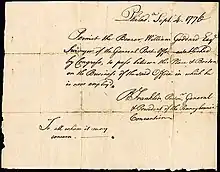 Philad.ª Sept. 4. 1776
Permit the Bearer William Goddard Esq.
Surveyor of the General Post Office established
by Congress, to pass between this Place & Boston
on the Business of the said Office in which he
is now employ'd.
B Franklin Post General
& President of the Pennsylvania
Convention
To all whom it may
concern.